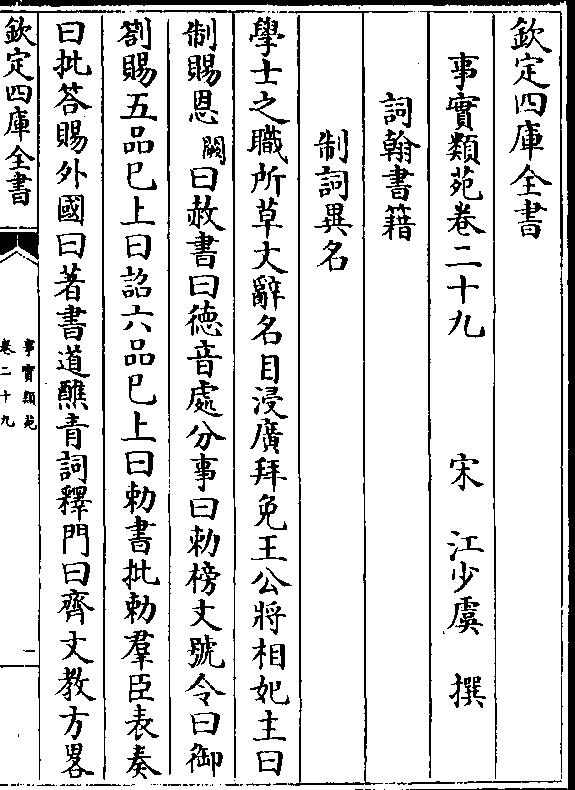 欽定四庫全書
事實類苑卷二十九　宋　江少虞　撰
詞翰書籍
制詞異名
學士之職所草文辭名目浸廣拜免王公將相妃主曰
制賜恩闕曰赦書曰徳音處分事曰勅榜文號令曰御
劄賜五品已上曰詔六品已上曰勅書批勅羣臣表奏
曰批答賜外國曰著書道醮青詞釋門曰齊文教方畧
欽定四庫全書
事實類苑
卷二十九
一